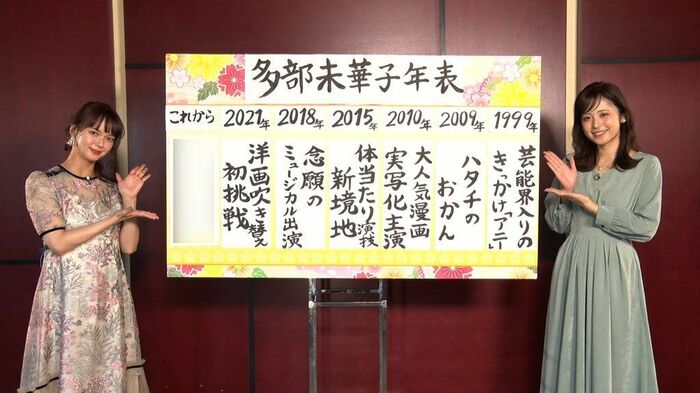 多部未華子年表
これから
2021年
2018年
2015年
2010年
2009年
1999年
芸能界入りの
きっかけ「アニー」
ハタチの
おかん
大人気漫画
実写化主演
体当たり演技
新境地
念願の
ミュージカル出演
洋画吹き替え
初挑戦